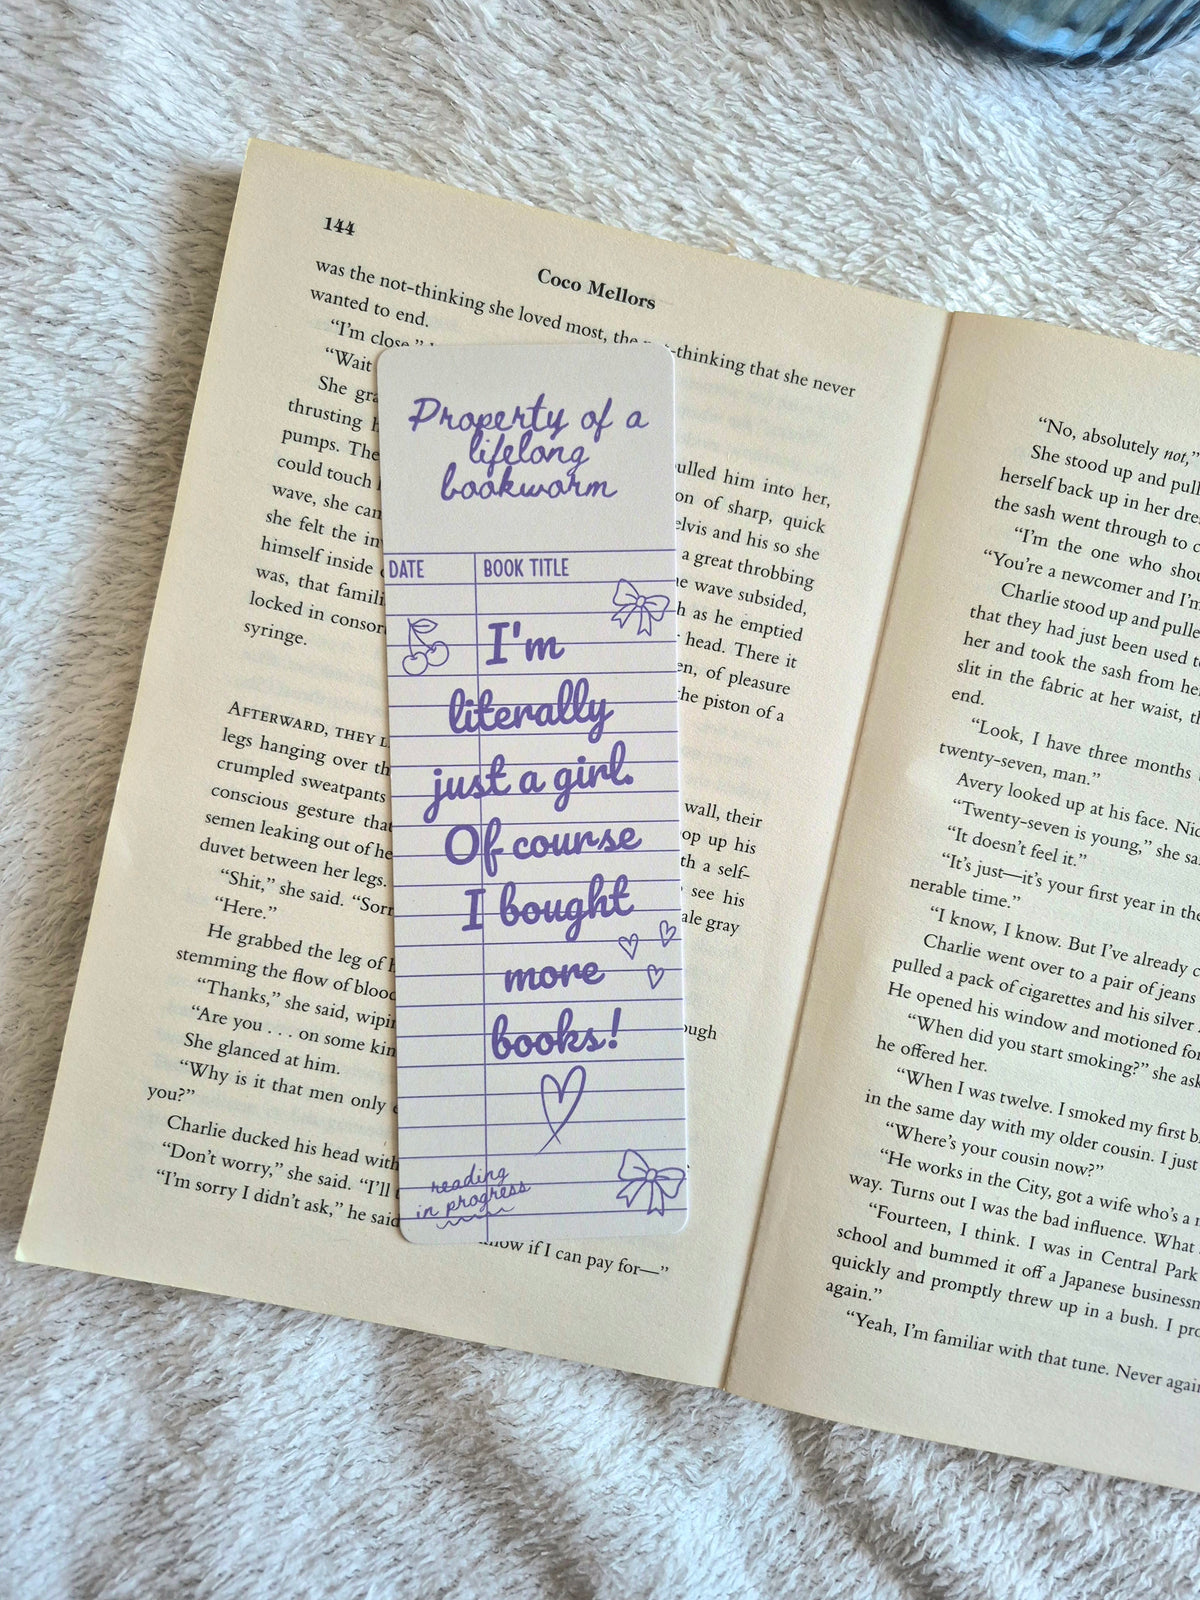 144
Coco Mellors
was the not-thinking she loved most, the not-thinking that she never
wanted to end.
"I'm close,"
"Wait
She
thrusting
pumps. The
could touch
wave, she can
she felt the
himself inside
was, that
locked in
syringe.
pulled him into her,
of sharp, quick
and his so she
a great throbbing
wave subsided,
as he emptied
head. There it
of pleasure
the piston of a
AFTERWARD, THEY
legs hanging over
crumpled sweatpants
conscious gesture that
semen leaking out of he
duvet between her legs.
"Shit," she said. "Sorr
"Here."
He grabbed the leg of
stemming the flow of blood
"Thanks," she said,
"Are you . . . on some
She glanced at him.
"Why is it that men only
you?"
Charlie ducked his head with
"Don't worry," she said. "I'll
"I'm sorry I didn't ask," he said
wall, their
up his
a self-
see his
gray
if I can pay for—"
Property of a
lifelong
bookworm
DATE BOOK TITLE
I'm
literally
just a girl.
Of course
I bought
more
books!
reading
in progress
"No, absolutely not,"
She stood up and pull
herself back up in her dre
the sash went through to
"I'm the one who
"You're a newcomer and I'm
Charlie stood up and
that they had just been used
her and took the sash from
slit in the fabric at her waist,
end.
"Look, I have three months
twenty-seven, man."
Avery looked up at his face.
"Twenty-seven is young," she
"It doesn't feel it."
"It's just—it's your first year in the
nerable time."
"I know, I know. But I've already
Charlie went over to a pair of jeans
pulled a pack of cigarettes and his silver
He opened his window and motioned for
"When did you start smoking?" she
he offered her.
"When I was twelve. I smoked my first
in the same day with my older cousin. I just
"Where's your cousin now?"
"He works in the City, got a wife who's a
way. Turns out I was the bad influence. What
"Fourteen, I think. I was in Central Park
school and bummed it off a Japanese
quickly and promptly threw up in a bush. I
again."
"Yeah, I'm familiar with that tune. Never